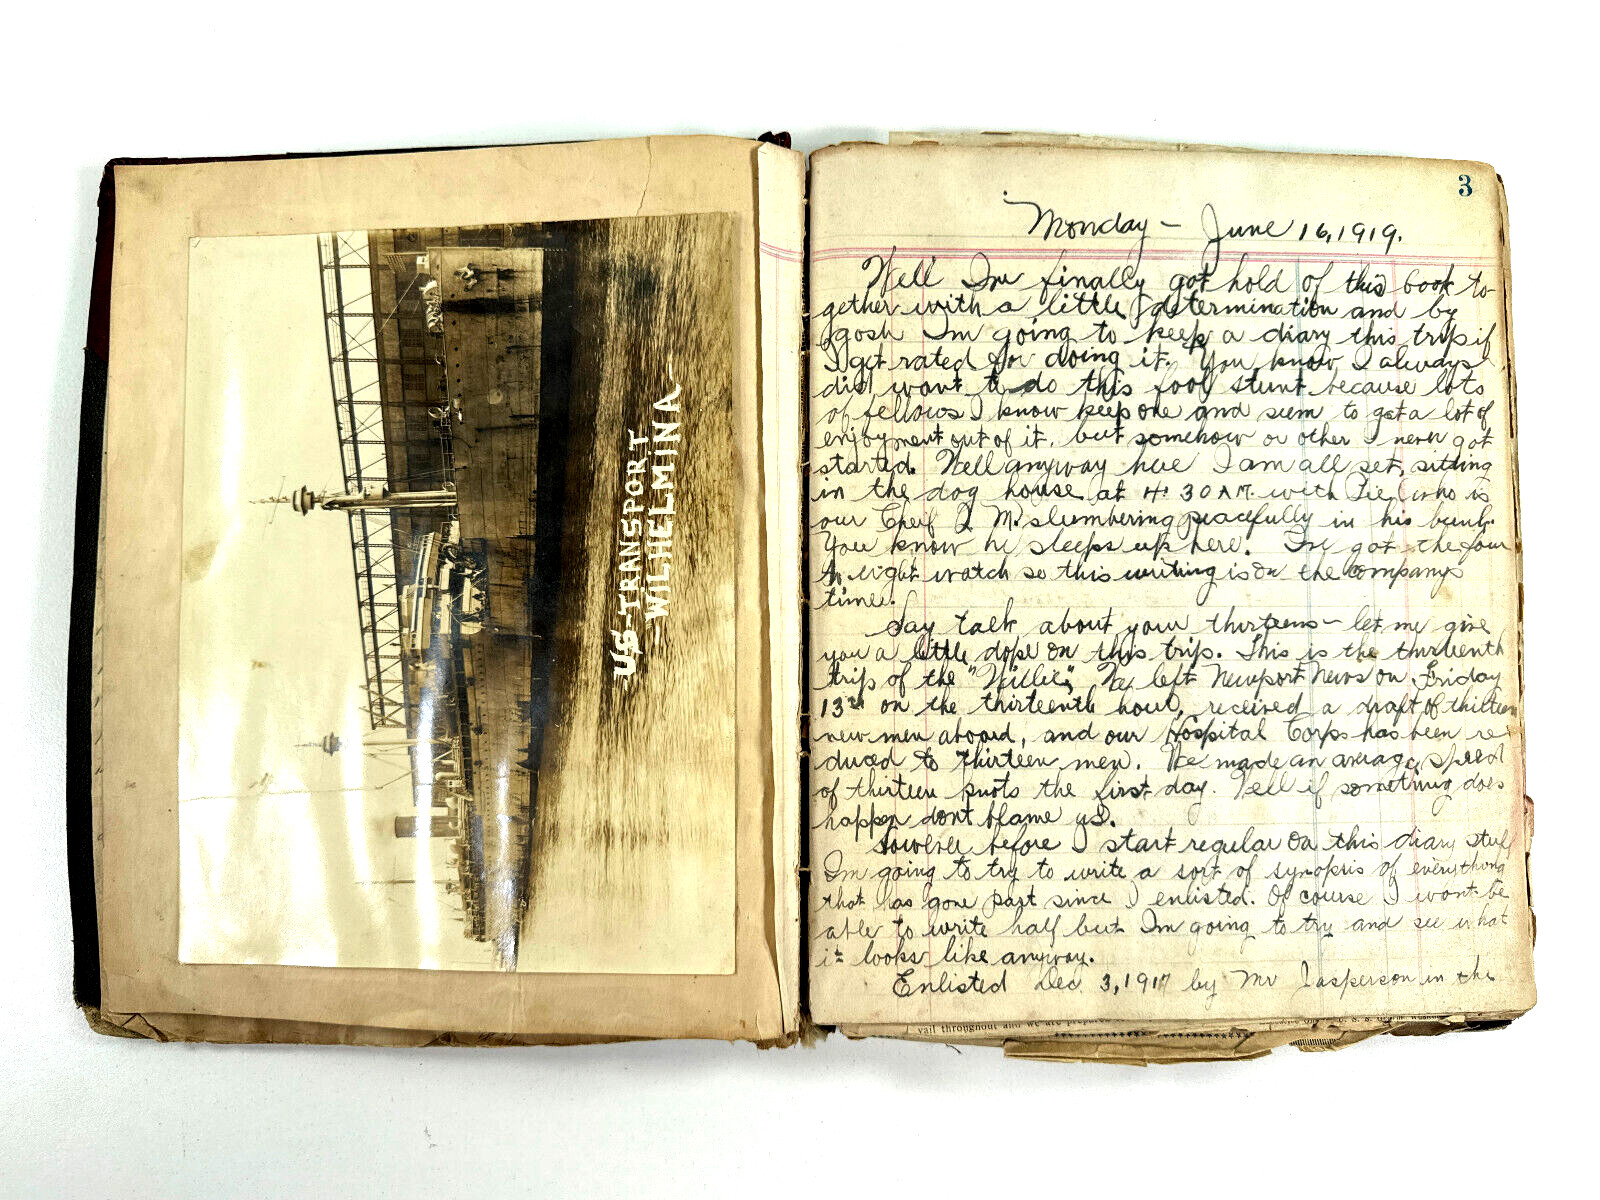 U.S. TRANSPORT
WILHELMINA
3
Monday - June 16, 1919.
Well Im finally got hold of this book to
gether with a little determination and by
gosh Im going to keep a diary this trip if
I get rated for doing it. You know I always
did want to do this fool stunt because lots
of fellows I know keep one and seem to get a lot of
enjoyment out of it, but somehow or other I never got
started. Well anyway here I am all set, sitting
in the dog house at 4:30 A.M. with who is
our Cheif Q M. slumbering peacefully in his bunk.
You know he sleeps up here. Ive got the four
to eight watch so this writing is on the companys
time.
Say talk about your thirteens - let me give
you a little dope on this trip. This is the thirteenth
trip of the "Willie". We left Newport News on Friday
13th on the thirteenth hour, received a draft of thirteen
new men aboard, and our Hospital Corps has been re
duced to thirteen men. We made an average speed
of thirteen knots the first day. Well if something does
happen dont blame us.
However before I start regular on this diary stuff
Im going to try to write a sort of synopsis of everything
that has gone past since I enlisted. Of course I wont be
able to write half but Im going to try and see what
it looks like anyway.
Enlisted Dec. 3, 1917 by Mr Jasperson in the
vail throughout and we are prepared